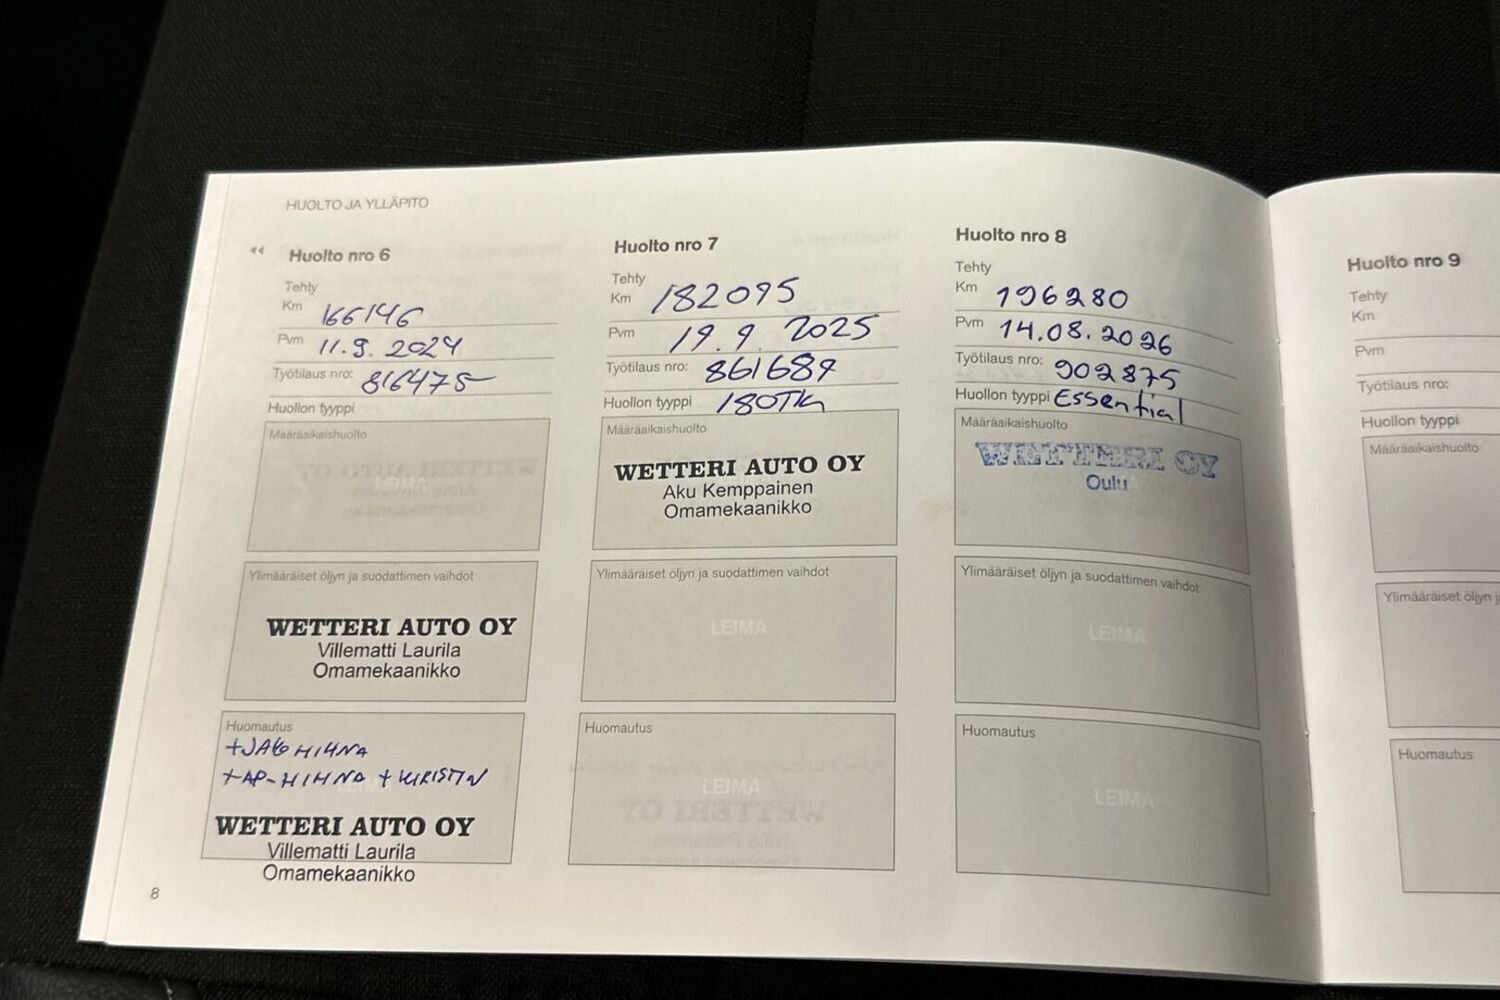 HUOLTO JA YLLÄPITO
Huolto nro 6
Tehty
Km 166146
Pvm 11.9.2024
Työtilaus nro: 816475
Huollon tyyppi
Määräaikaishuolto
LEIMA
Ylimääräiset öljyn ja suodattimen vaihdot
WETTERI AUTO OY
Villematti Laurila
Omamekaanikko
Huomautus
+JAKOHIHNA
+AP-HIHNA + KIRISTIN
WETTERI AUTO OY
Villematti Laurila
Omamekaanikko
8
Huolto nro 7
Tehty
Km 182095
Pvm 19.9. 2025
Työtilaus nro: 861689
Huollon tyyppi 180Tkm
Määräaikaishuolto
WETTERI AUTO OY
Aku Kemppainen
Omamekaanikko
Ylimääräiset öljyn ja suodattimen vaihdot
LEIMA
Huomautus
LEIMA
Huolto nro 8
Tehty
Km 196280
Pvm 14.08.2026
Työtilaus nro: 902875
Huollon tyyppi Essential
Määräaikaishuolto
WETTERI OY
Oulu
Ylimääräiset öljyn ja suodattimen vaihdot
LEIMA
Huomautus
LEIMA
Huolto nro 9
Tehty
Km
Pvm
Työtilaus nro:
Huollon tyyppi
Määräaikaishuolto
Ylimääräiset öljyn
Huomautus